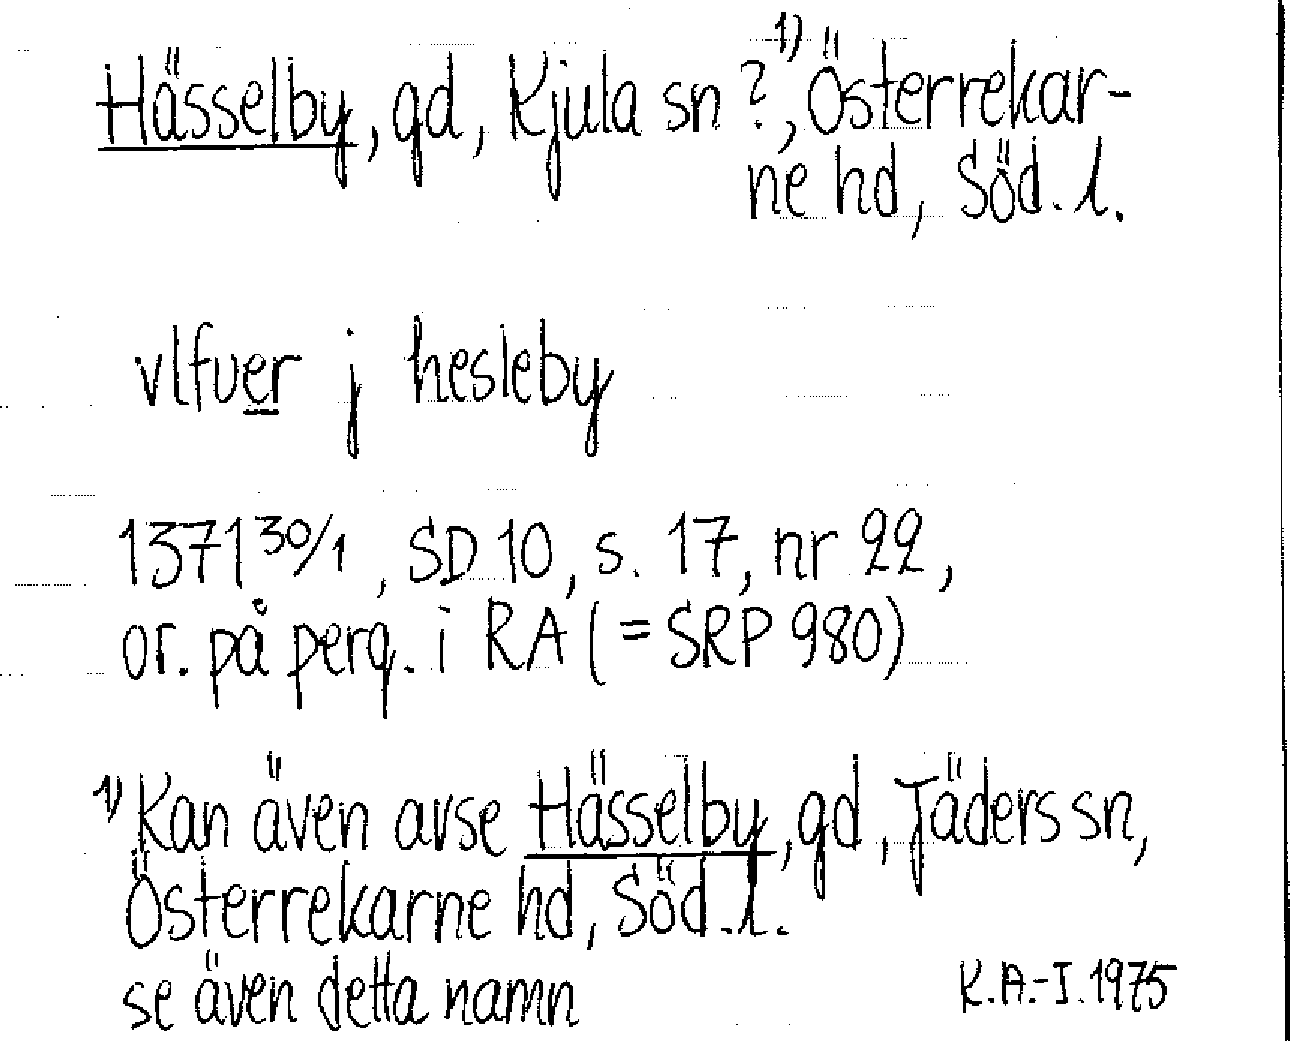 Hässelby, gd, Kjula sn ?¹⁾, Österrekar-
ne hd, Söd. l.
vlfuer j hesleby
1371 30/1, SD 10, s. 17, nr 22,
or. på perg. i RA (= SRP 980)
1) Kan även avse Hässelby, gd, Jäders sn,
Österrekarne hd, Söd. l.
se även detta namn
K.A.-I. 1975